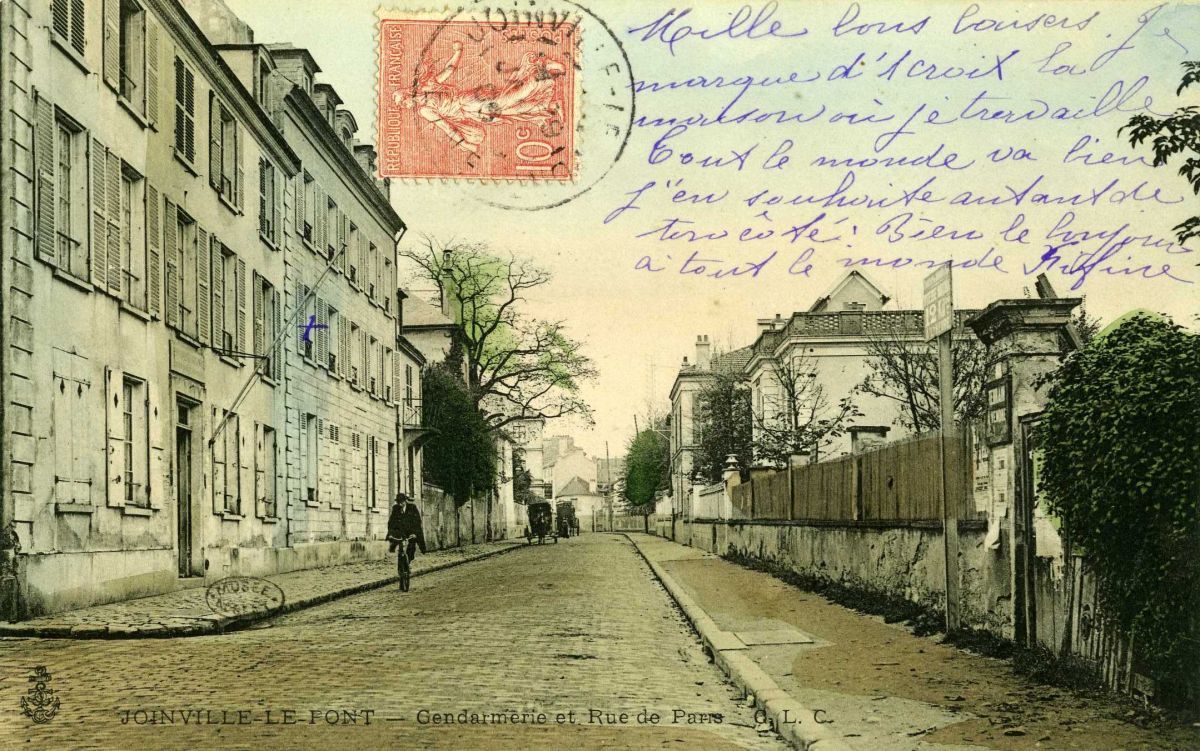 Mille bons baisers. Je
marque d'1 croix la
maison où je travaille
Tout le monde va bien
j'en souhaite autant de
Bien le bonjour
à tout le monde
REPUBLIQUE FRANÇAISE
10c
MUSÉE
JOINVILLE-LE-PONT — Gendarmerie et Rue de Paris C. L. C.